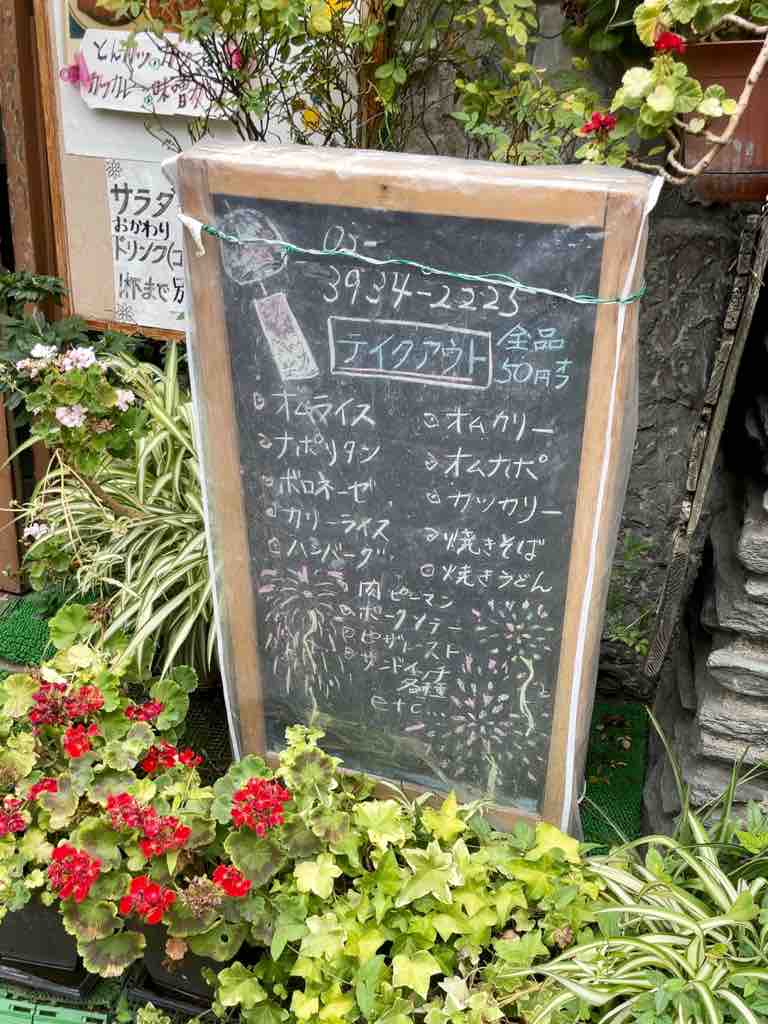 とんカツ
カツカレー 味噌カ
サラダ
おかわり
ドリンク
1杯まで
03-
3934-2225
テイクアウト
全品
50円オフ
オムライス
ナポリタン
ボロネーゼ
カリーライス
ハンバーグ
オムカリー
オムナポ
カツカリー
焼きそば
焼きうどん
肉ピーマン
ポークソテー
ピザトースト
サンドイッチ
各種
etc...